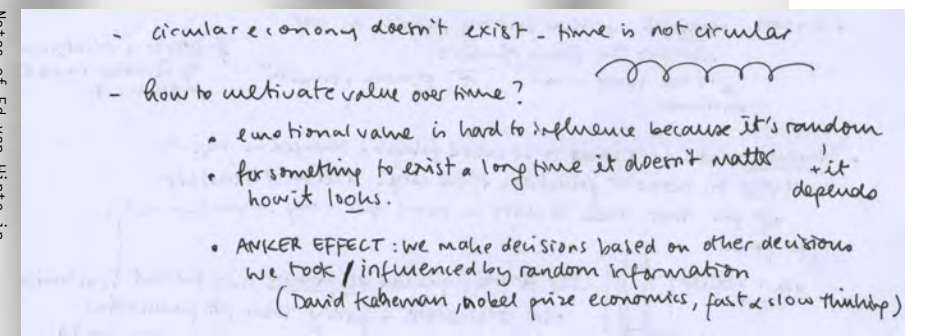 - circular economy doesn't exist - time is not circular
- how to cultivate value over time?
• emotional value is hard to influence because it's random
+ it depends
• for something to exist a long time it doesn't matter
how it looks.
• ANKER EFFECT: we make decisions based on other decisions
we took / influenced by random information
(David Kaheman, nobel prize economics, fast & slow thinking)
Notes of Ed van Hinte in